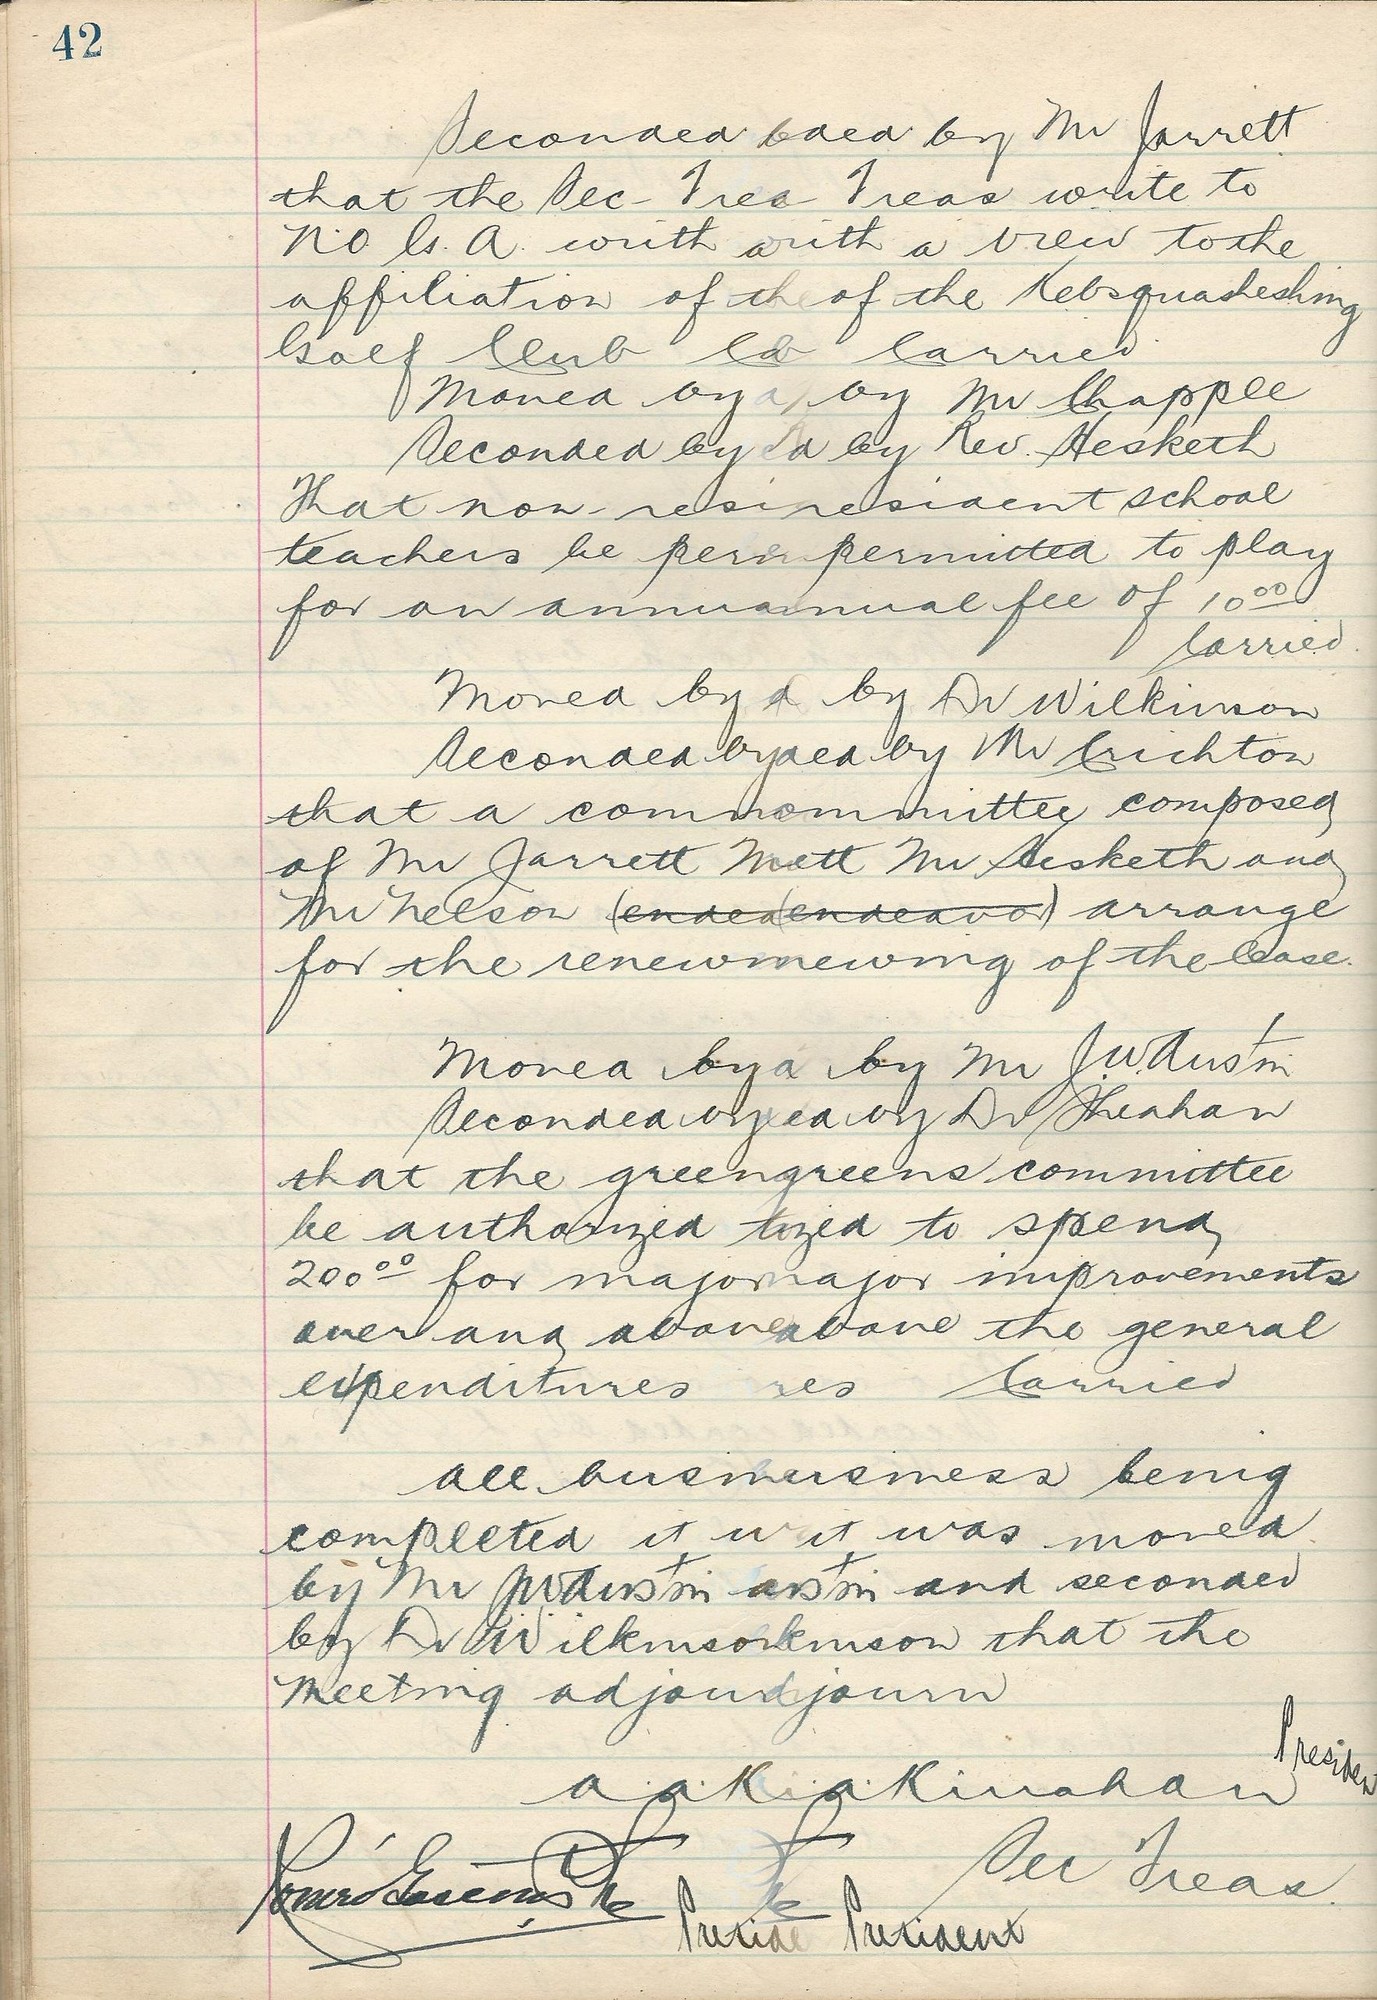 42
Seconded bded by Mr Jarrett
that the Sec- Trea Treas write to
N.O G. A. with with a view to the
affiliation of the of the Kebsquasheshing
Golf Club Cb Carried
Moved by d by Mr Chapple
Seconded by ed by Rev. Hesketh
That non-resiresident school
teachers be perm permitted to play
for an annuannual fee of 10.00
Carried
Moved by d by Dr Wilkinson
Seconded byded by Mr Crichton
that a commommittee composed
of Mr Jarrett Mett Mr Hesketh and
Mr Nelson (endea(endeavor) arrange
for the renewinewing of the lease.
Moved by d by Mr J.W. Austin
Seconded byed by Dr Sheahan
that the greengreens committee
be authorized ized to spend
200.00 for majormajor improvements
over and aboveabove the general
expenditures res Carried
All businusiness being
completed it w it was moved
by Mr JW Austin ustin and seconded
by Dr Wilkinsonkinson that the
meeting adjourdjourn
President
a.a. Ki.a. Kinahan
Sec Treas.
Preside President